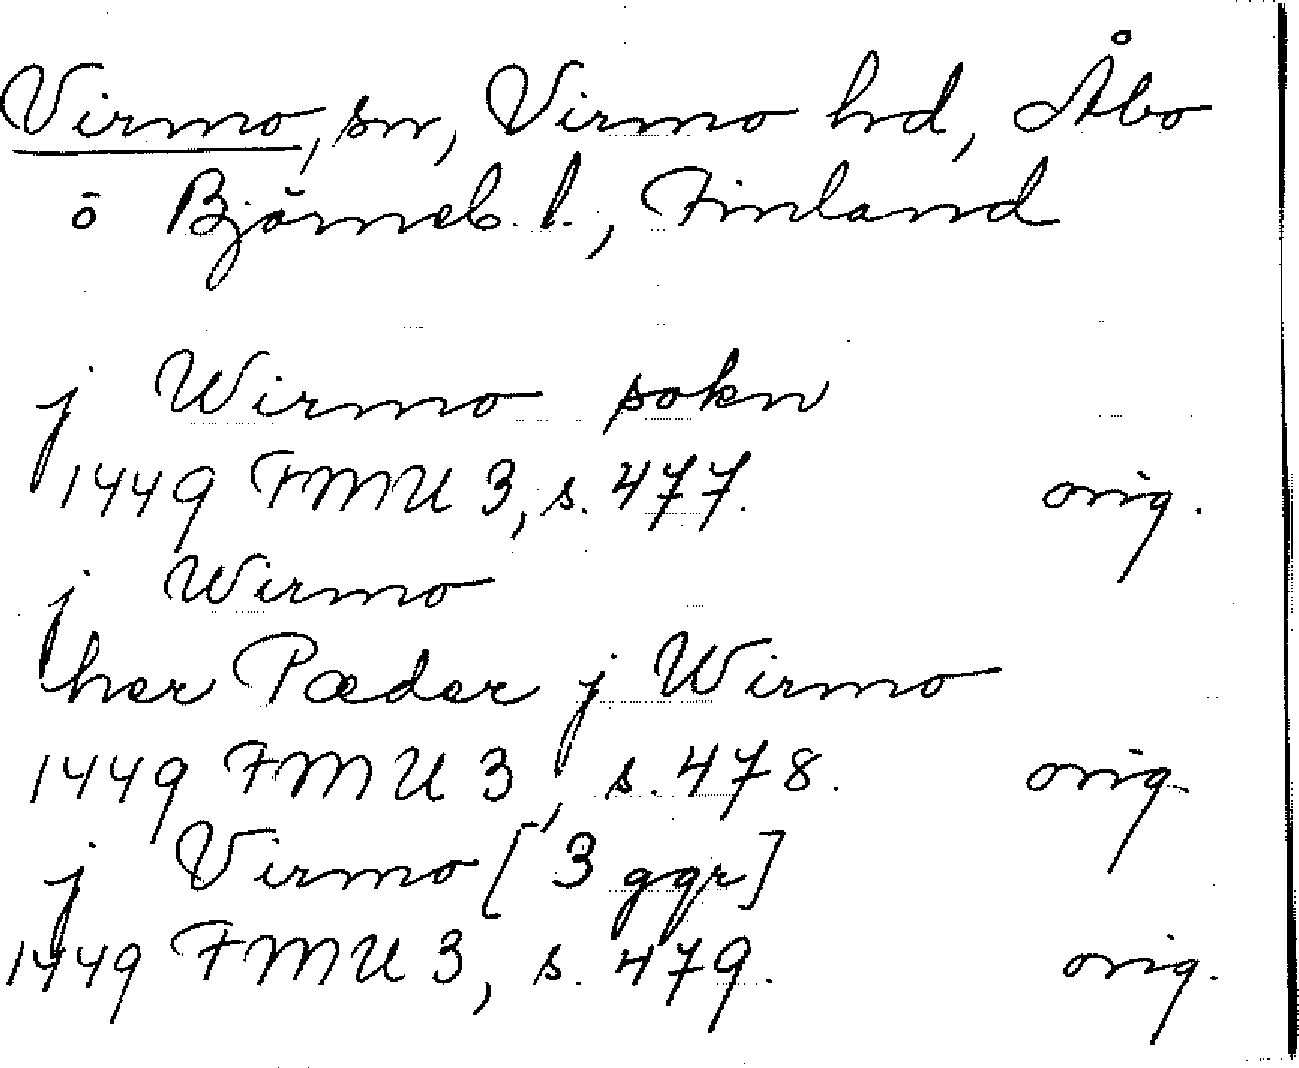 Virmo, sn, Virmo hd, Åbo
o Björneb. l., Finland
j Wirmo sokn
1449 FMU 3, s. 477. orig.
j Wirmo
her Pæder j Wirmo
1449 FMU 3, s. 478. orig.
j Virmo [3 ggr]
1449 FMU 3, s. 479. orig.